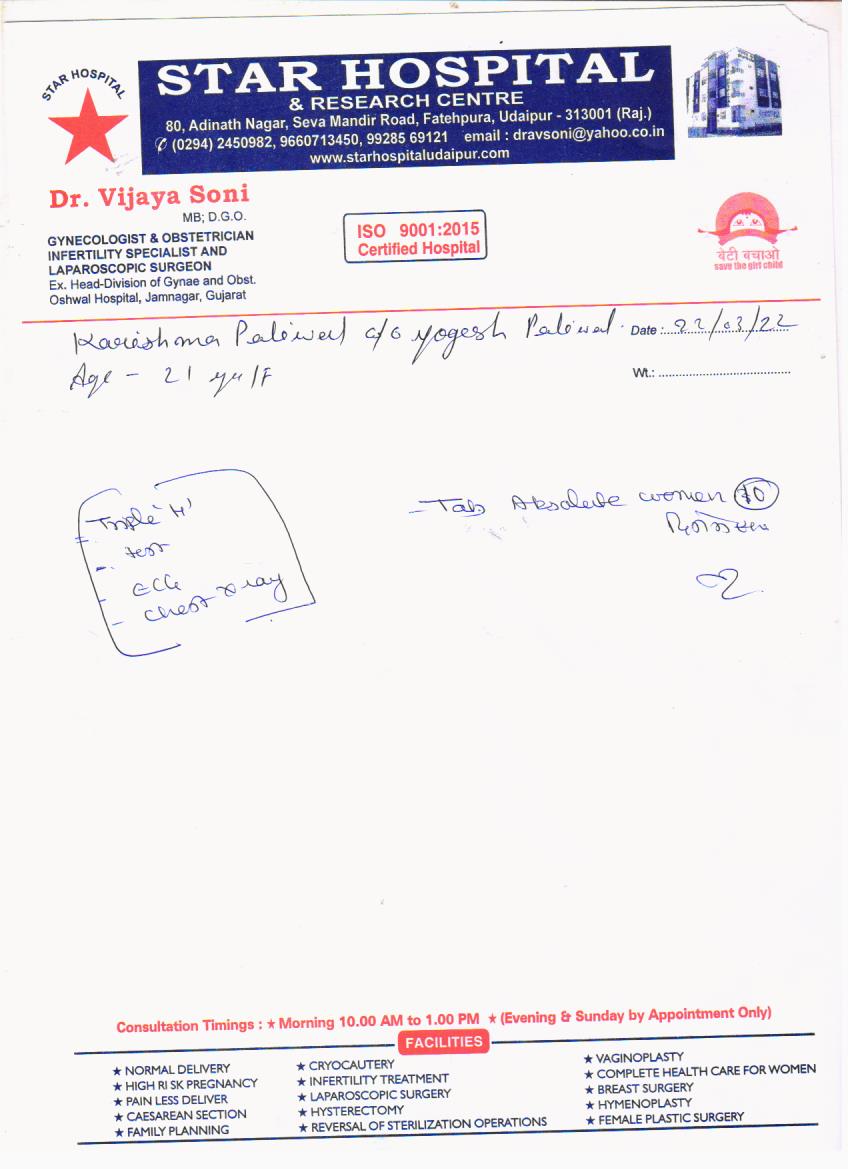 STAR HOSPITAL
STAR HOSPITAL
& RESEARCH CENTRE
80, Adinath Nagar, Seva Mandir Road, Fatehpura, Udaipur - 313001 (Raj.)
✆ (0294) 2450982, 9660713450, 99285 69121 email : dravsoni@yahoo.co.in
www.starhospitaludaipur.com
Dr. Vijaya Soni
MB; D.G.O.
GYNECOLOGIST & OBSTETRICIAN
INFERTILITY SPECIALIST AND
LAPAROSCOPIC SURGEON
Ex. Head-Division of Gynae and Obst.
Oshwal Hospital, Jamnagar, Gujarat
ISO 9001:2015
Certified Hospital
बेटी बचाओ
save the girl child
Karishma Paliwal c/o Yogesh Paliwal. Date : 22/03/22
Age - 21 yr/F
Wt.:
Triple 'H'
- test
- ECG
- chest xray
- Tab Absolute women 10
Consultation Timings : ★ Morning 10.00 AM to 1.00 PM ★ (Evening & Sunday by Appointment Only)
FACILITIES
★ NORMAL DELIVERY
★ HIGH RI SK PREGNANCY
★ PAIN LESS DELIVER
★ CAESAREAN SECTION
★ FAMILY PLANNING
★ CRYOCAUTERY
★ INFERTILITY TREATMENT
★ LAPAROSCOPIC SURGERY
★ HYSTERECTOMY
★ REVERSAL OF STERILIZATION OPERATIONS
★ VAGINOPLASTY
★ COMPLETE HEALTH CARE FOR WOMEN
★ BREAST SURGERY
★ HYMENOPLASTY
★ FEMALE PLASTIC SURGERY